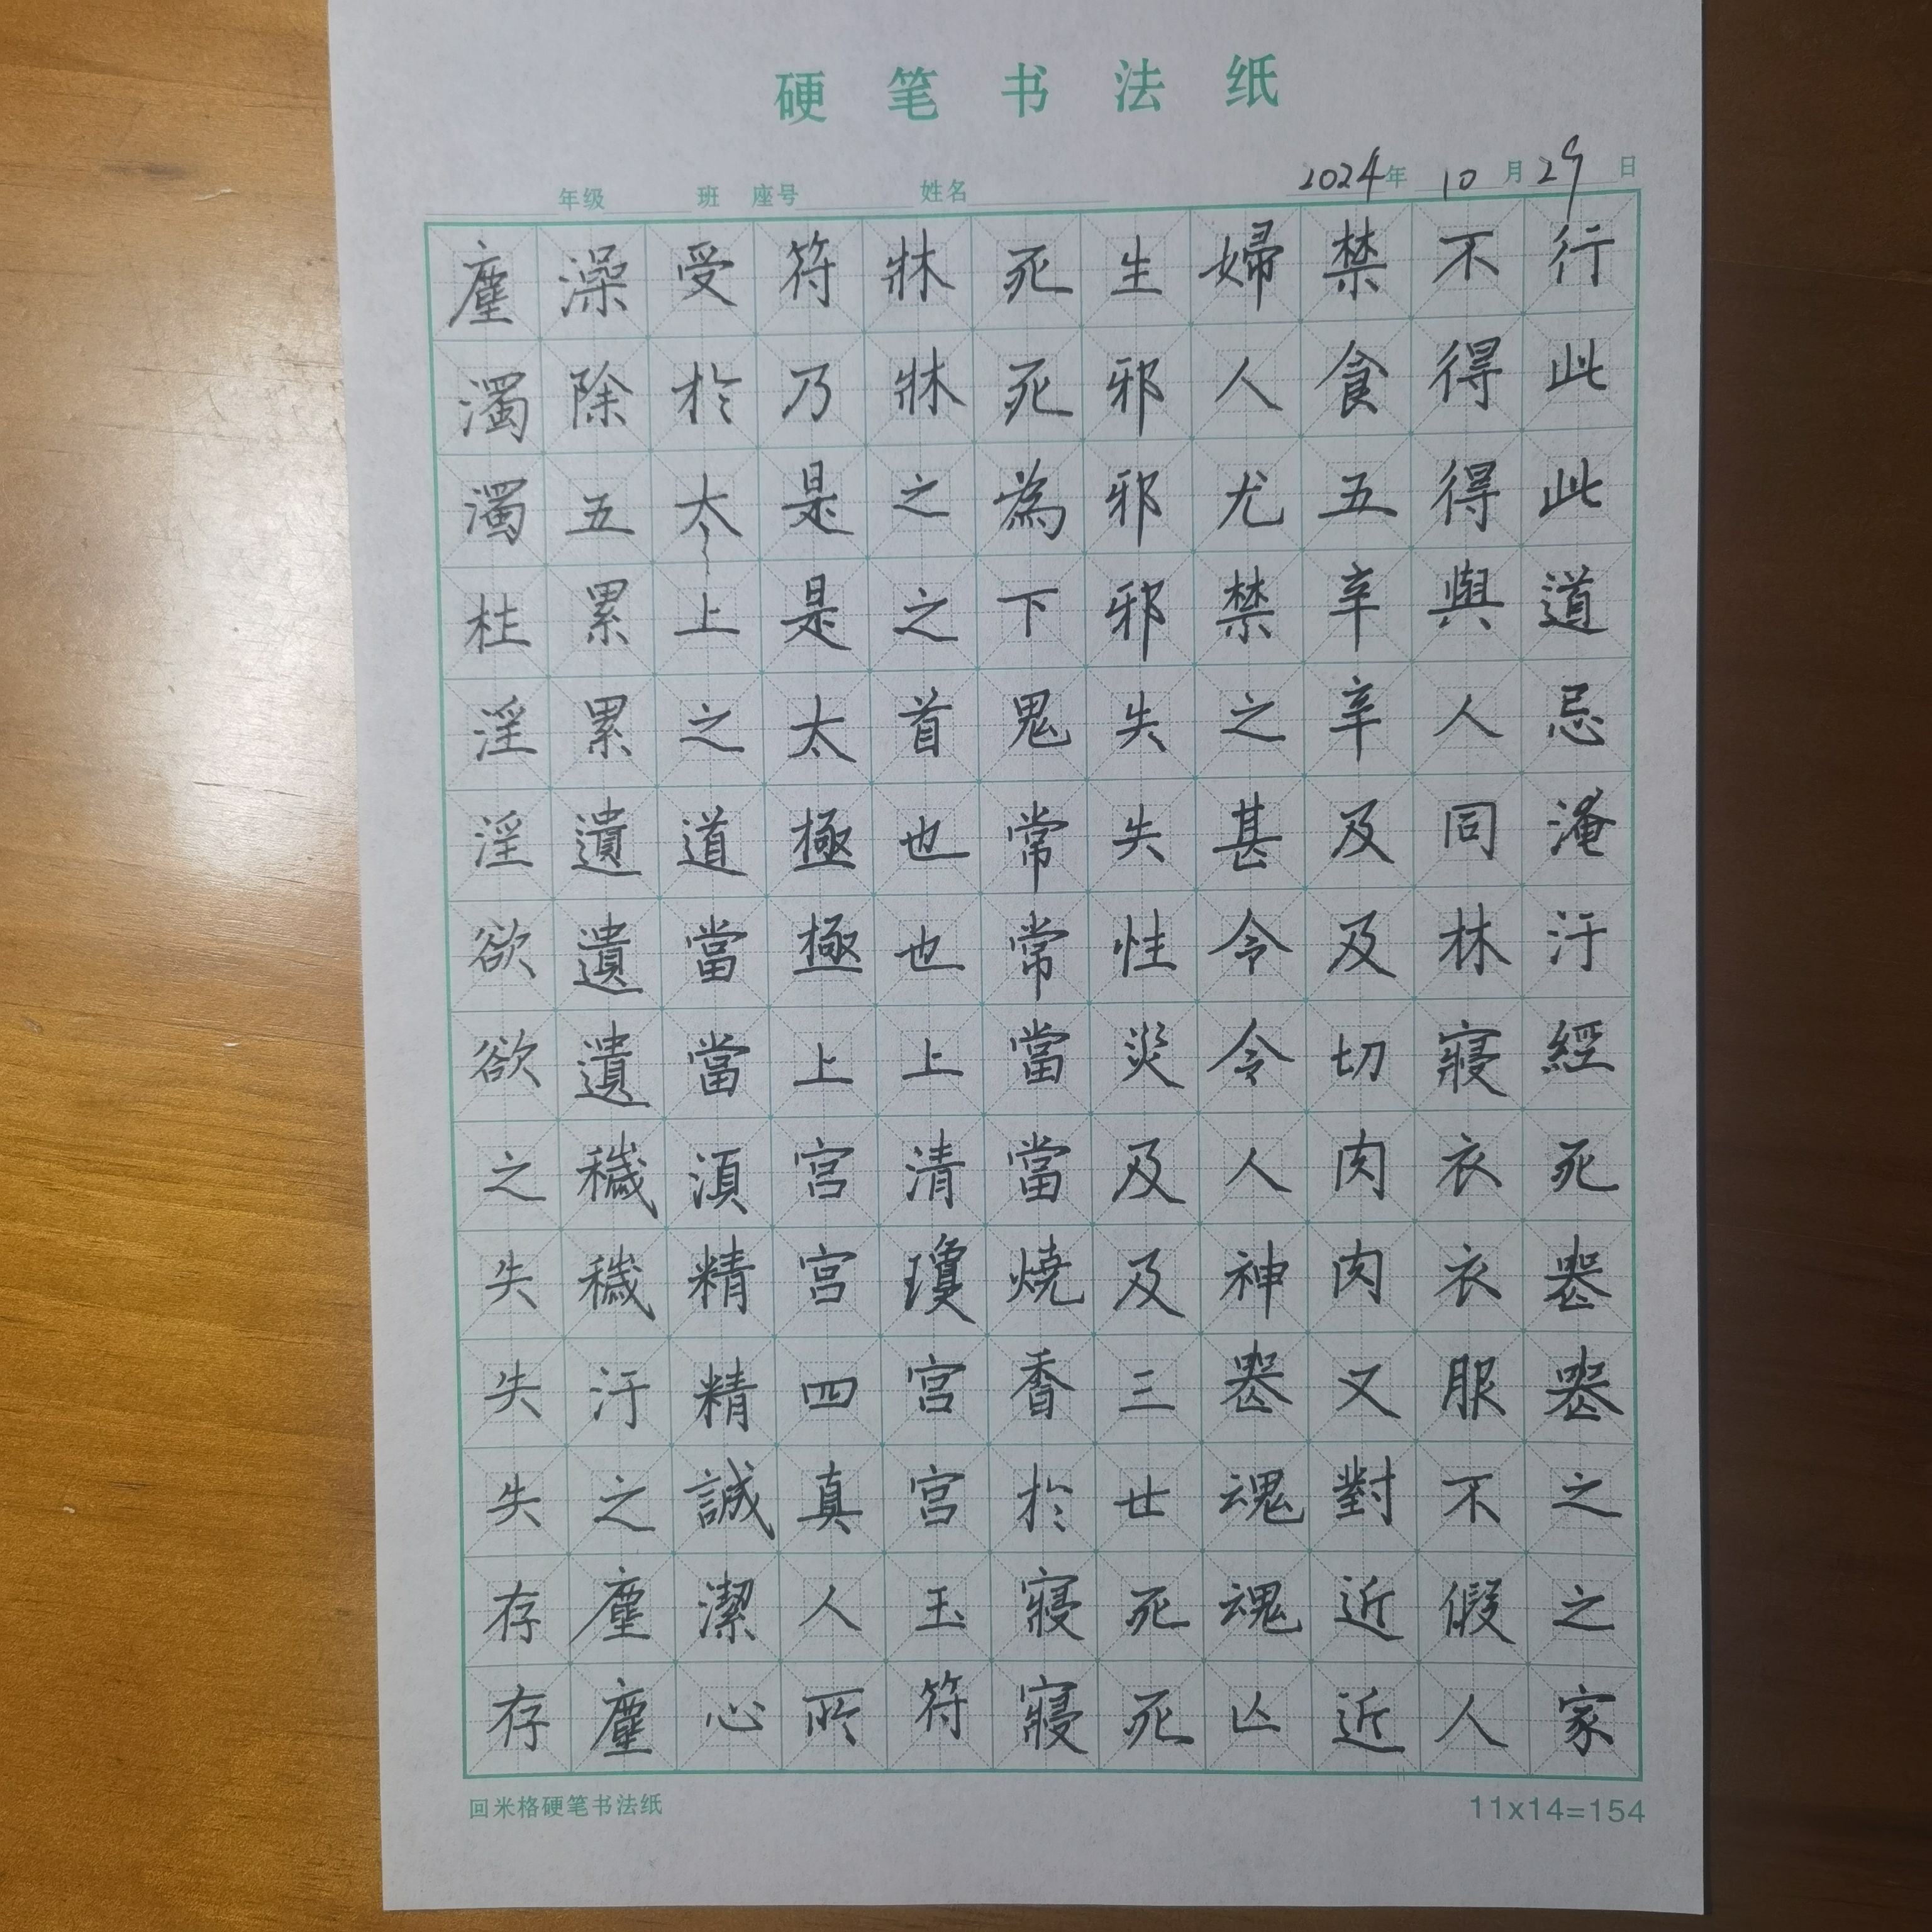 硬笔书法纸
年级 班 座号 姓名 2024年 10月29日
行此此道忌淹汙經死喪喪之之家
不得得與人同林寢衣衣服不假人
禁食五辛辛及及切肉肉又對近近
婦人尤禁之甚令令人神喪魂魂亡
生邪邪邪失失性災及及三世死死
死死為下鬼常常當當燒香於寢寢
牀牀之之首也也上清瓊宮宮玉符
符乃是是太極極上宮宮四真人所
受於太上之道當當湏精精誠潔心
澡除五累累遺遺遺穢穢汙之塵塵
塵濁濁杜淫淫欲欲之失失失存存
回米格硬笔书法纸
11x14=154